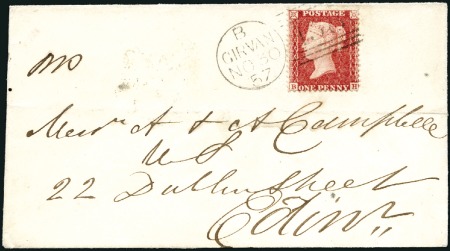 B
GIRVAN
NO 30
57
POSTAGE
ONE PENNY
H
Messrs A & A Campbell
W S
22 Dublin Street
Edinr